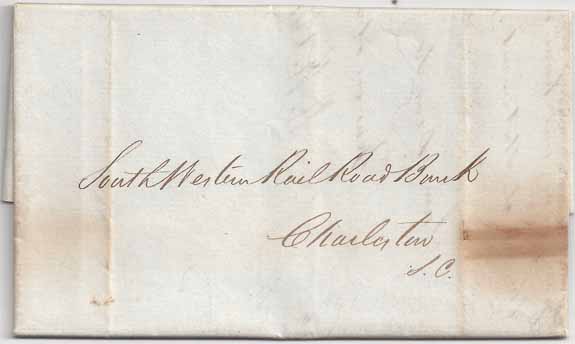 South Western Rail Road Bank
Charleston
S. C.